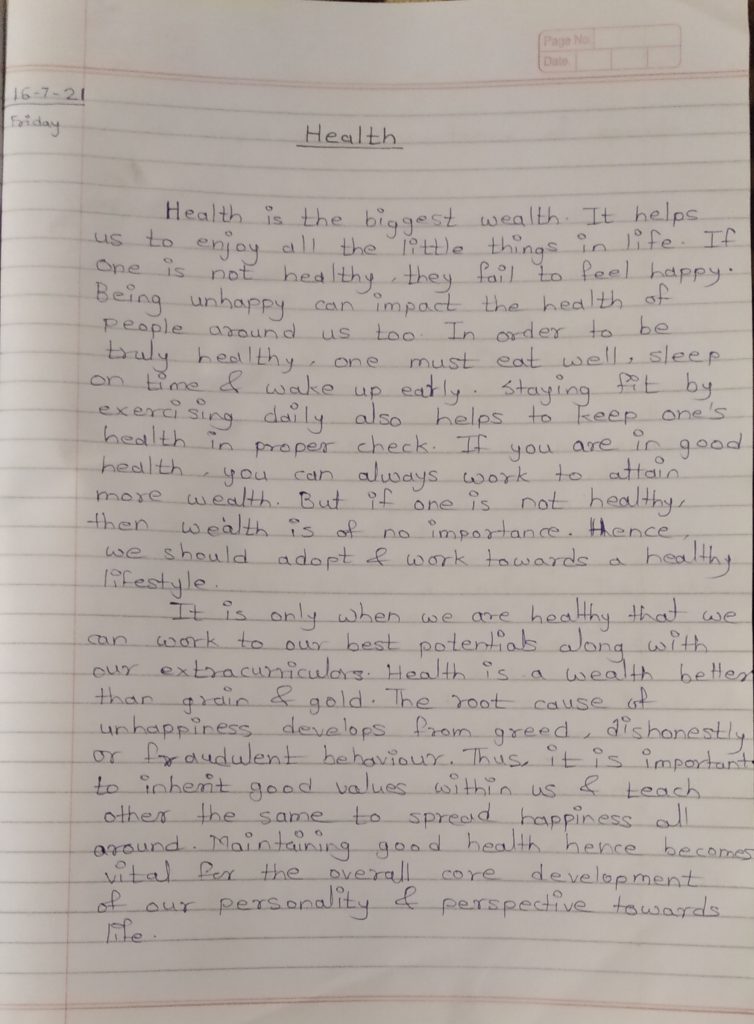 Page No.
Date.
16-7-21
Friday
Health
Health is the biggest wealth. It helps
us to enjoy all the little things in life. If
one is not healthy, they fail to feel happy.
Being unhappy can impact the health of
people around us too. In order to be
truly healthy, one must eat well, sleep
on time & wake up early. Staying fit by
exercising daily also helps to keep one's
health in proper check. If you are in good
health, you can always work to attain
more wealth. But if one is not healthy,
then wealth is of no importance. Hence,
we should adopt & work towards a healthy
lifestyle.
It is only when we are healthy that we
can work to our best potentials along with
our extracurriculars. Health is a wealth better
than grain & gold. The root cause of
unhappiness develops from greed, dishonestly
or fraudulent behaviour. Thus, it is important
to inherit good values within us & teach
other the same to spread happiness all
around. Maintaining good health hence becomes
vital for the overall core development
of our personality & perspective towards
life.